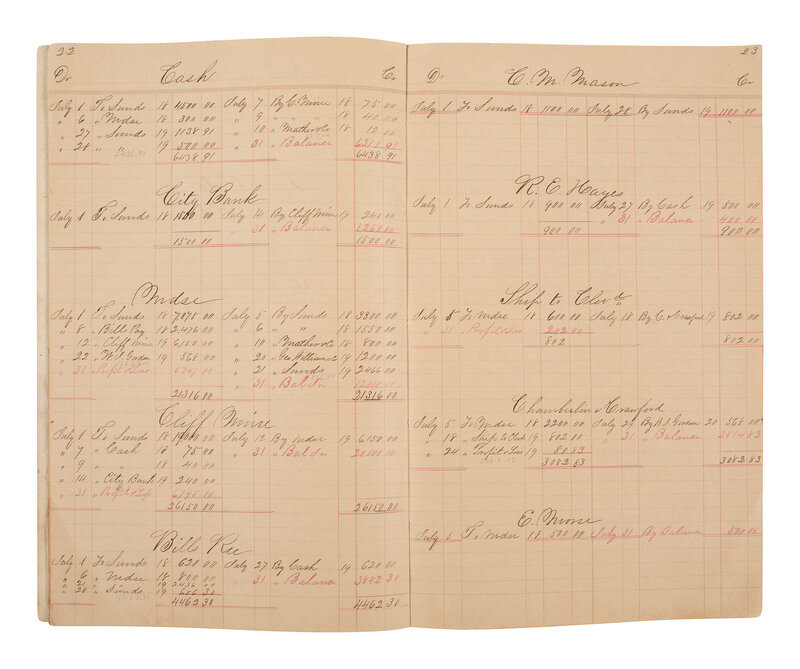 22
Dr Cash Cr
July 1 To Sunds 18 4500 00 July 7 By C. Mine 18 75 00
" 6 " Mdse 18 300 00 " 9 " " 18 40 00
" 27 " Sunds 19 1138 91 " 10 " Mather & Co 18 12 00
" 28 " " 19 500 00 " 31 " Balance 6311 91
6438 91 6438 91 6438 91
City Bank
July 1 To Sunds 18 1500 00 July 14 By Cliff Mine 19 240 00
" 31 " Balance 1260 00
1500 00 1500 00
Mdse
July 1 To Sunds 18 7075 00 July 5 By Sunds 18 3300 00
" 8 " Bills Pay 18 2476 00 " 6 " " 18 1550 00
" 12 " Cliff Mine 19 6150 00 " 10 " Mather & Co 18 800 00
" 22 " W. S. Gordon 19 568 00 " 20 " Geo Williams & Co 19 1200 00
" 31 " Profit & Loss 5047 00 " 21 " Sunds 19 2466 00
" 31 " Bal In 12000 00
21316 00 21316 00
Cliff Mine
July 1 To Sunds 18 00 July 12 By Mdse 19 6150 00
" 7 " Cash 18 75 00 " 31 " Bal In 20000 00
" 9 " " 18 40 00
" 14 " City Bank 19 240 00
" 31 " Profit & Loss 6795 00
26150 00 26150 00
Bills Rec
July 1 To Sunds 18 620 00 July 27 By Cash 19 620 00
" 6 " Mdse 18 800 00 " 31 " Balance 3842 30
" 21 " " 19 2436 00
" 28 " Sunds 19 606 30
4462 30 4462 30
23
Dr C. M. Mason Cr
July 1 To Sunds 18 1100 00 July 28 By Sunds 19 1100 00
R. E. Hayes
July 1 To Sunds 18 900 00 July 27 By Cash 19 500 00
" 31 " Balance 400 00
900 00 900 00
Ship to Clevd
July 5 To Mdse 18 600 00 July 18 By C. & Crawford 19 802 00
" 31 " Profit & Loss 202 00
802 802 00
Chamberlin & Crawford
July 5 To Mdse 18 2200 00 July 29 By W. S. Gordon 20 568 00
" 18 " Ship to Clevd 19 802 00 " 31 " Balance 2514 83
" 24 " Profit & Loss 19 80 83
3082 83 3082 83
E. Morse
July 5 To Mdse 18 500 00 July 31 By Balance 500 00